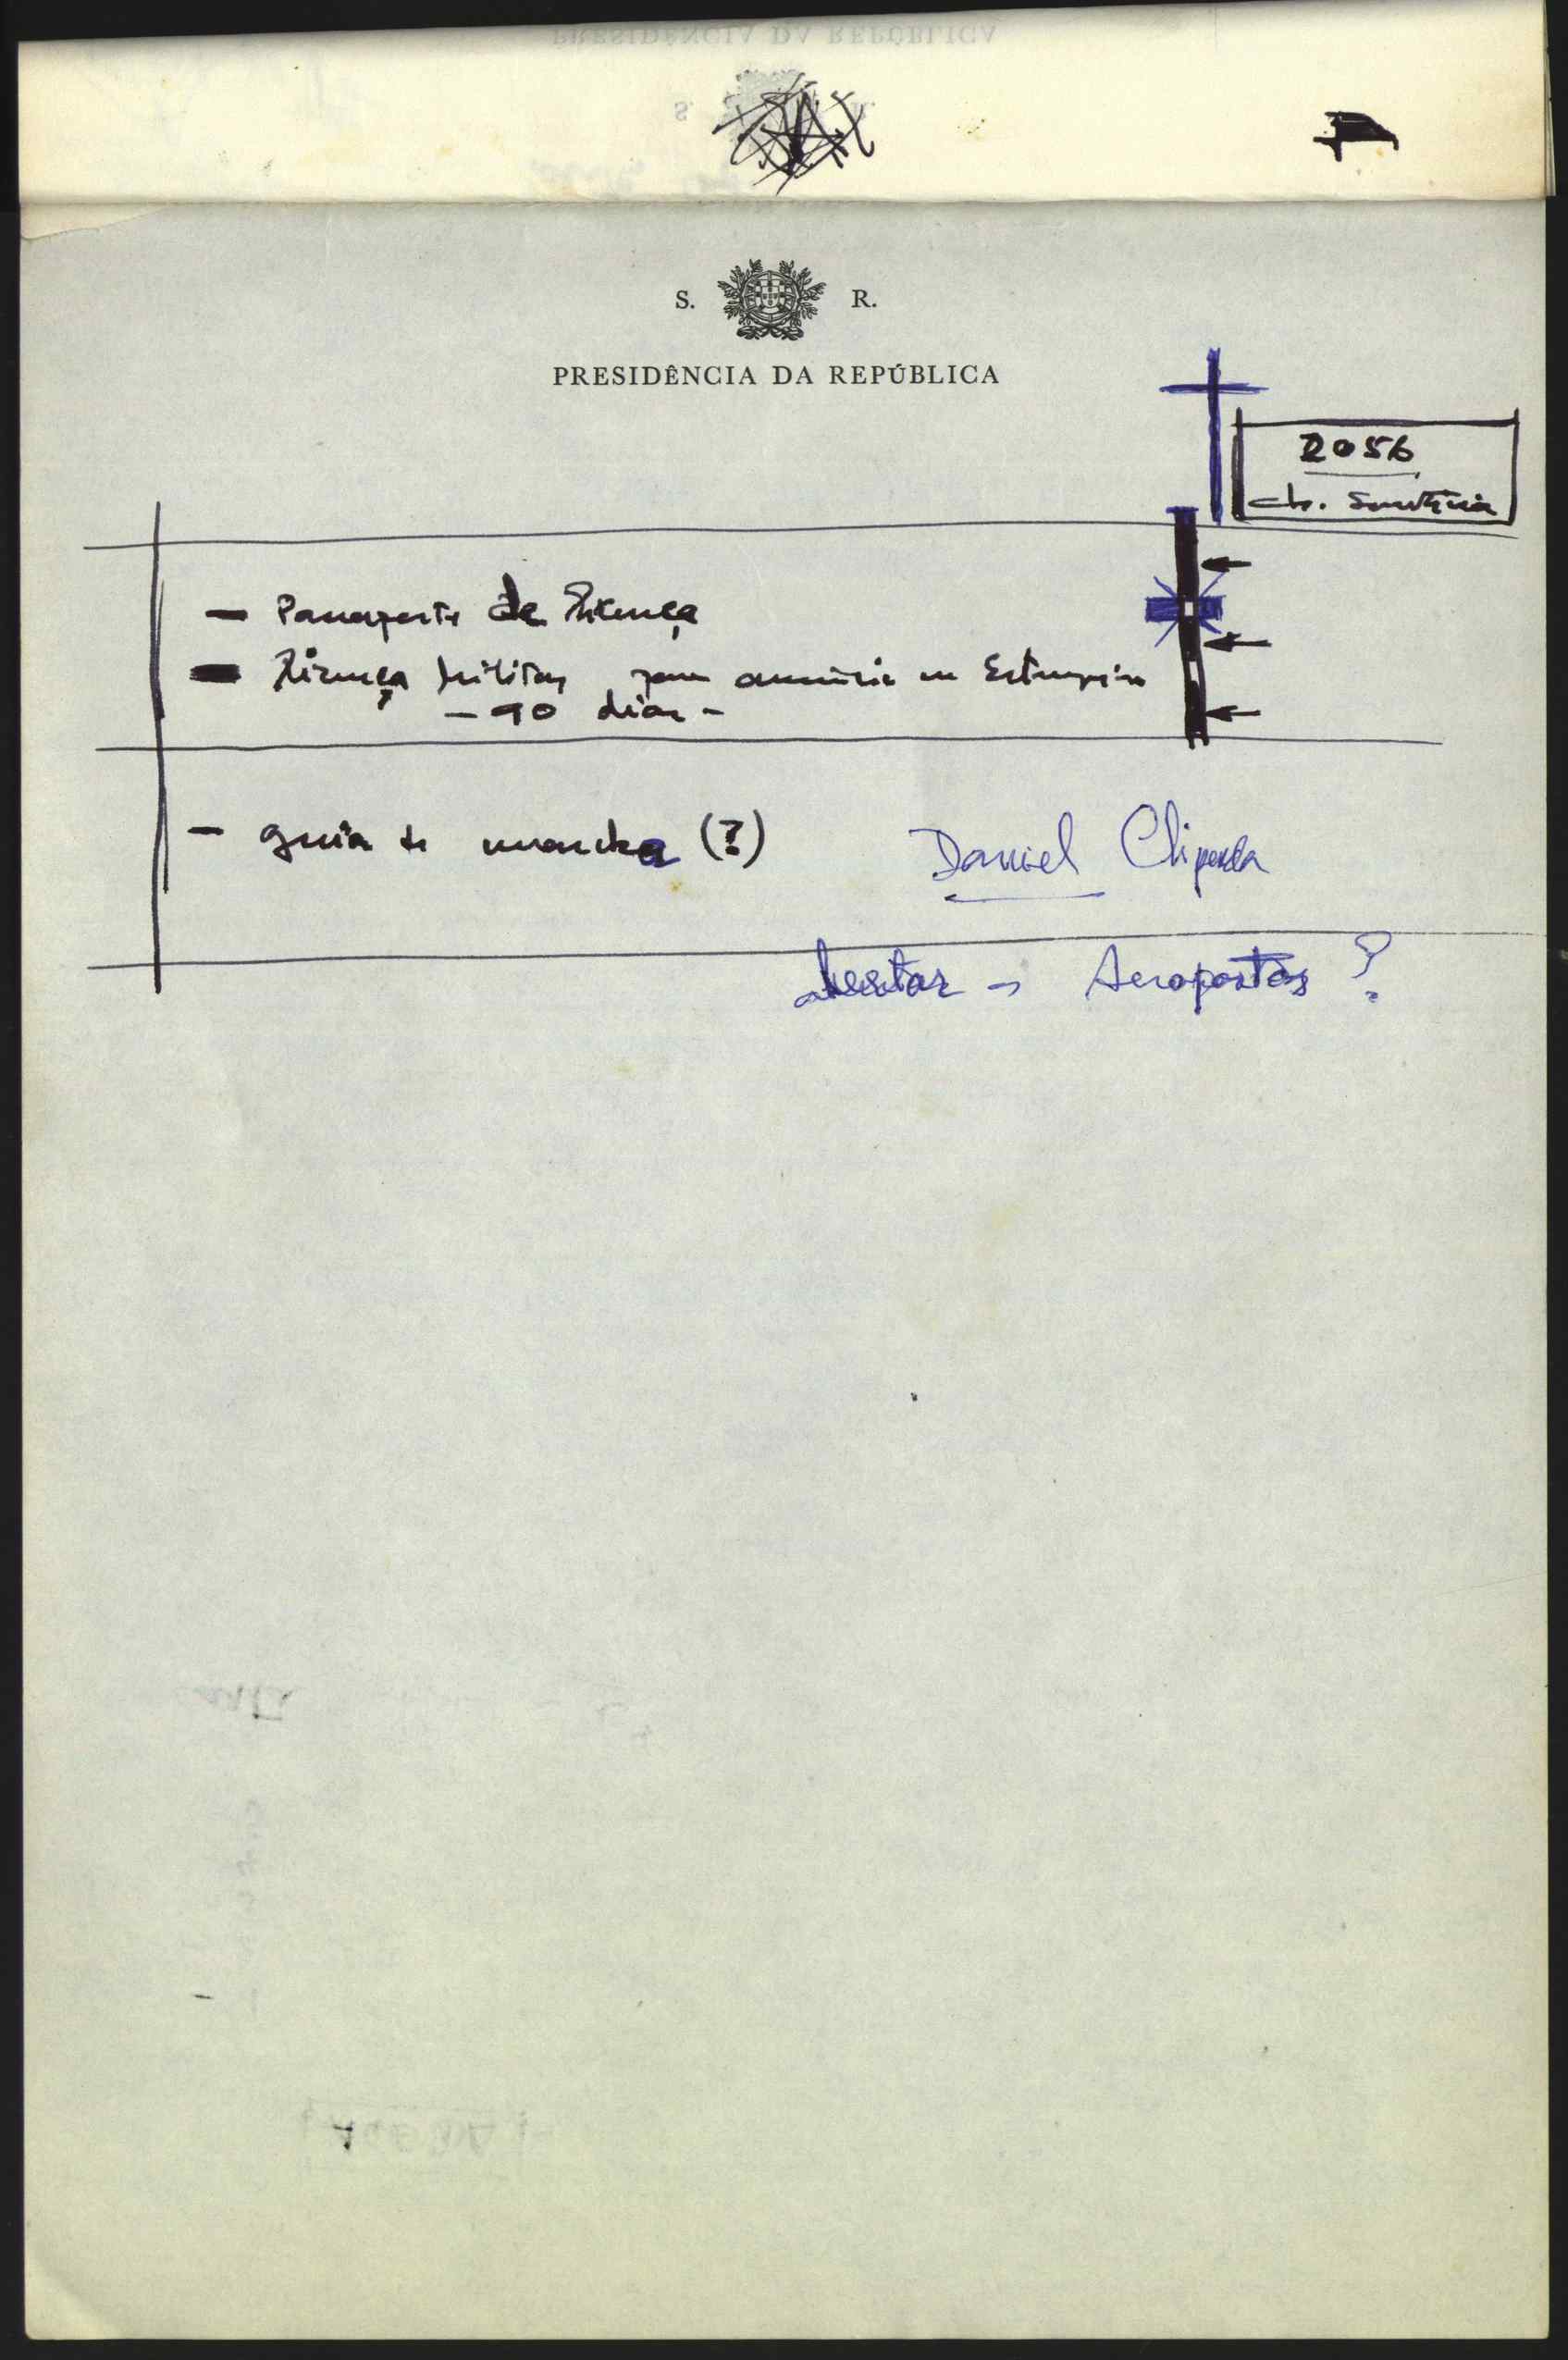 S. R.
PRESIDÊNCIA DA REPÚBLICA
2056
- Passaporte de licença
- Licença militar para ausência no Estrangeiro
- 90 dias -
- guia de marcha (?)
Daniel Chipenda
Aeroportos ?